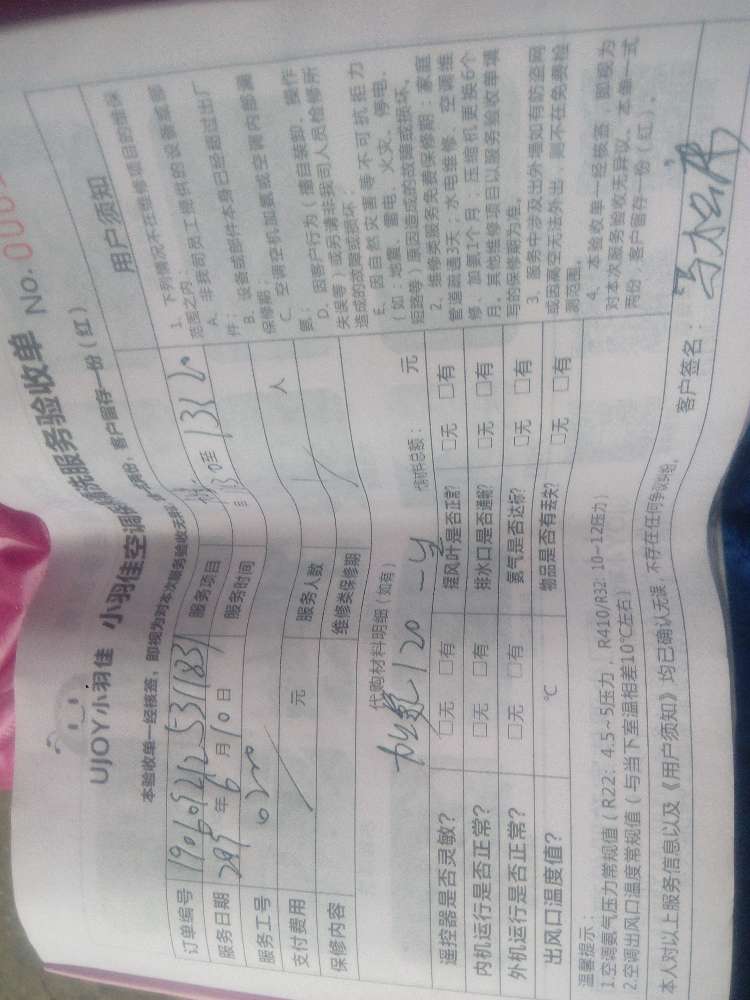 UJOY小羽佳 小羽佳空调
洗服务验收单 No.
本验收单一经核签，即视为对本次服务验收无
客户留存一份（红）
订单编号
服务项目
服务日期 年 6 月 10 日
服务时间 日
服务工号
支付费用 元
服务人数 人
保修内容
维修类保修期
用户须知
1、下列情况不在维修项目的维保
范围之内：
A、非我司员工提供的设备或部
件；
B、设备或部件本身已经超过出厂
保修期；
C、空调空机加氨或空调内部漏
氨；
D、因客户行为（擅自装卸、操作
失误等）或另请非我司人员检修所
造成的故障或损坏；
E、因自然灾害等不可抗拒力
（如：地震、雷电、火灾、停电、
短路等）原因造成的故障或损坏。
2、维修类服务免费保修期：家庭
管道疏通3天；水电维修、空调维
修、加氨1个月；压缩机更换6个
月。其他维修项目以服务验收单填
写的保修期为准。
3、服务中涉及出外墙如有防盗网
或因高空无法外出，则不在免费检
测范围。
4、本验收单一经核签，即视为
对本次服务验收无异议。本单一式
两份，客户留存一份（红）。
代购材料明细（如有）
材料总额： 元
加氨120
遥控器是否灵敏？ □无 □有
摆风叶是否正常？ □无 □有
内机运行是否正常？ □无 □有
排水口是否通畅？ □无 □有
外机运行是否正常？ □无 □有
氨气是否达标？ □无 □有
出风口温度值？ ℃
物品是否有丢失？ □无 □有
温馨提示：
1.空调氨气压力常规值（R22：4.5~5压力，R410/R32：10-12压力）
2.空调出风口温度常规值（与当下室温相差10℃左右）
本人对以上服务信息以及《用户须知》均已确认无误，不存在任何争议纠纷。
客户签名：